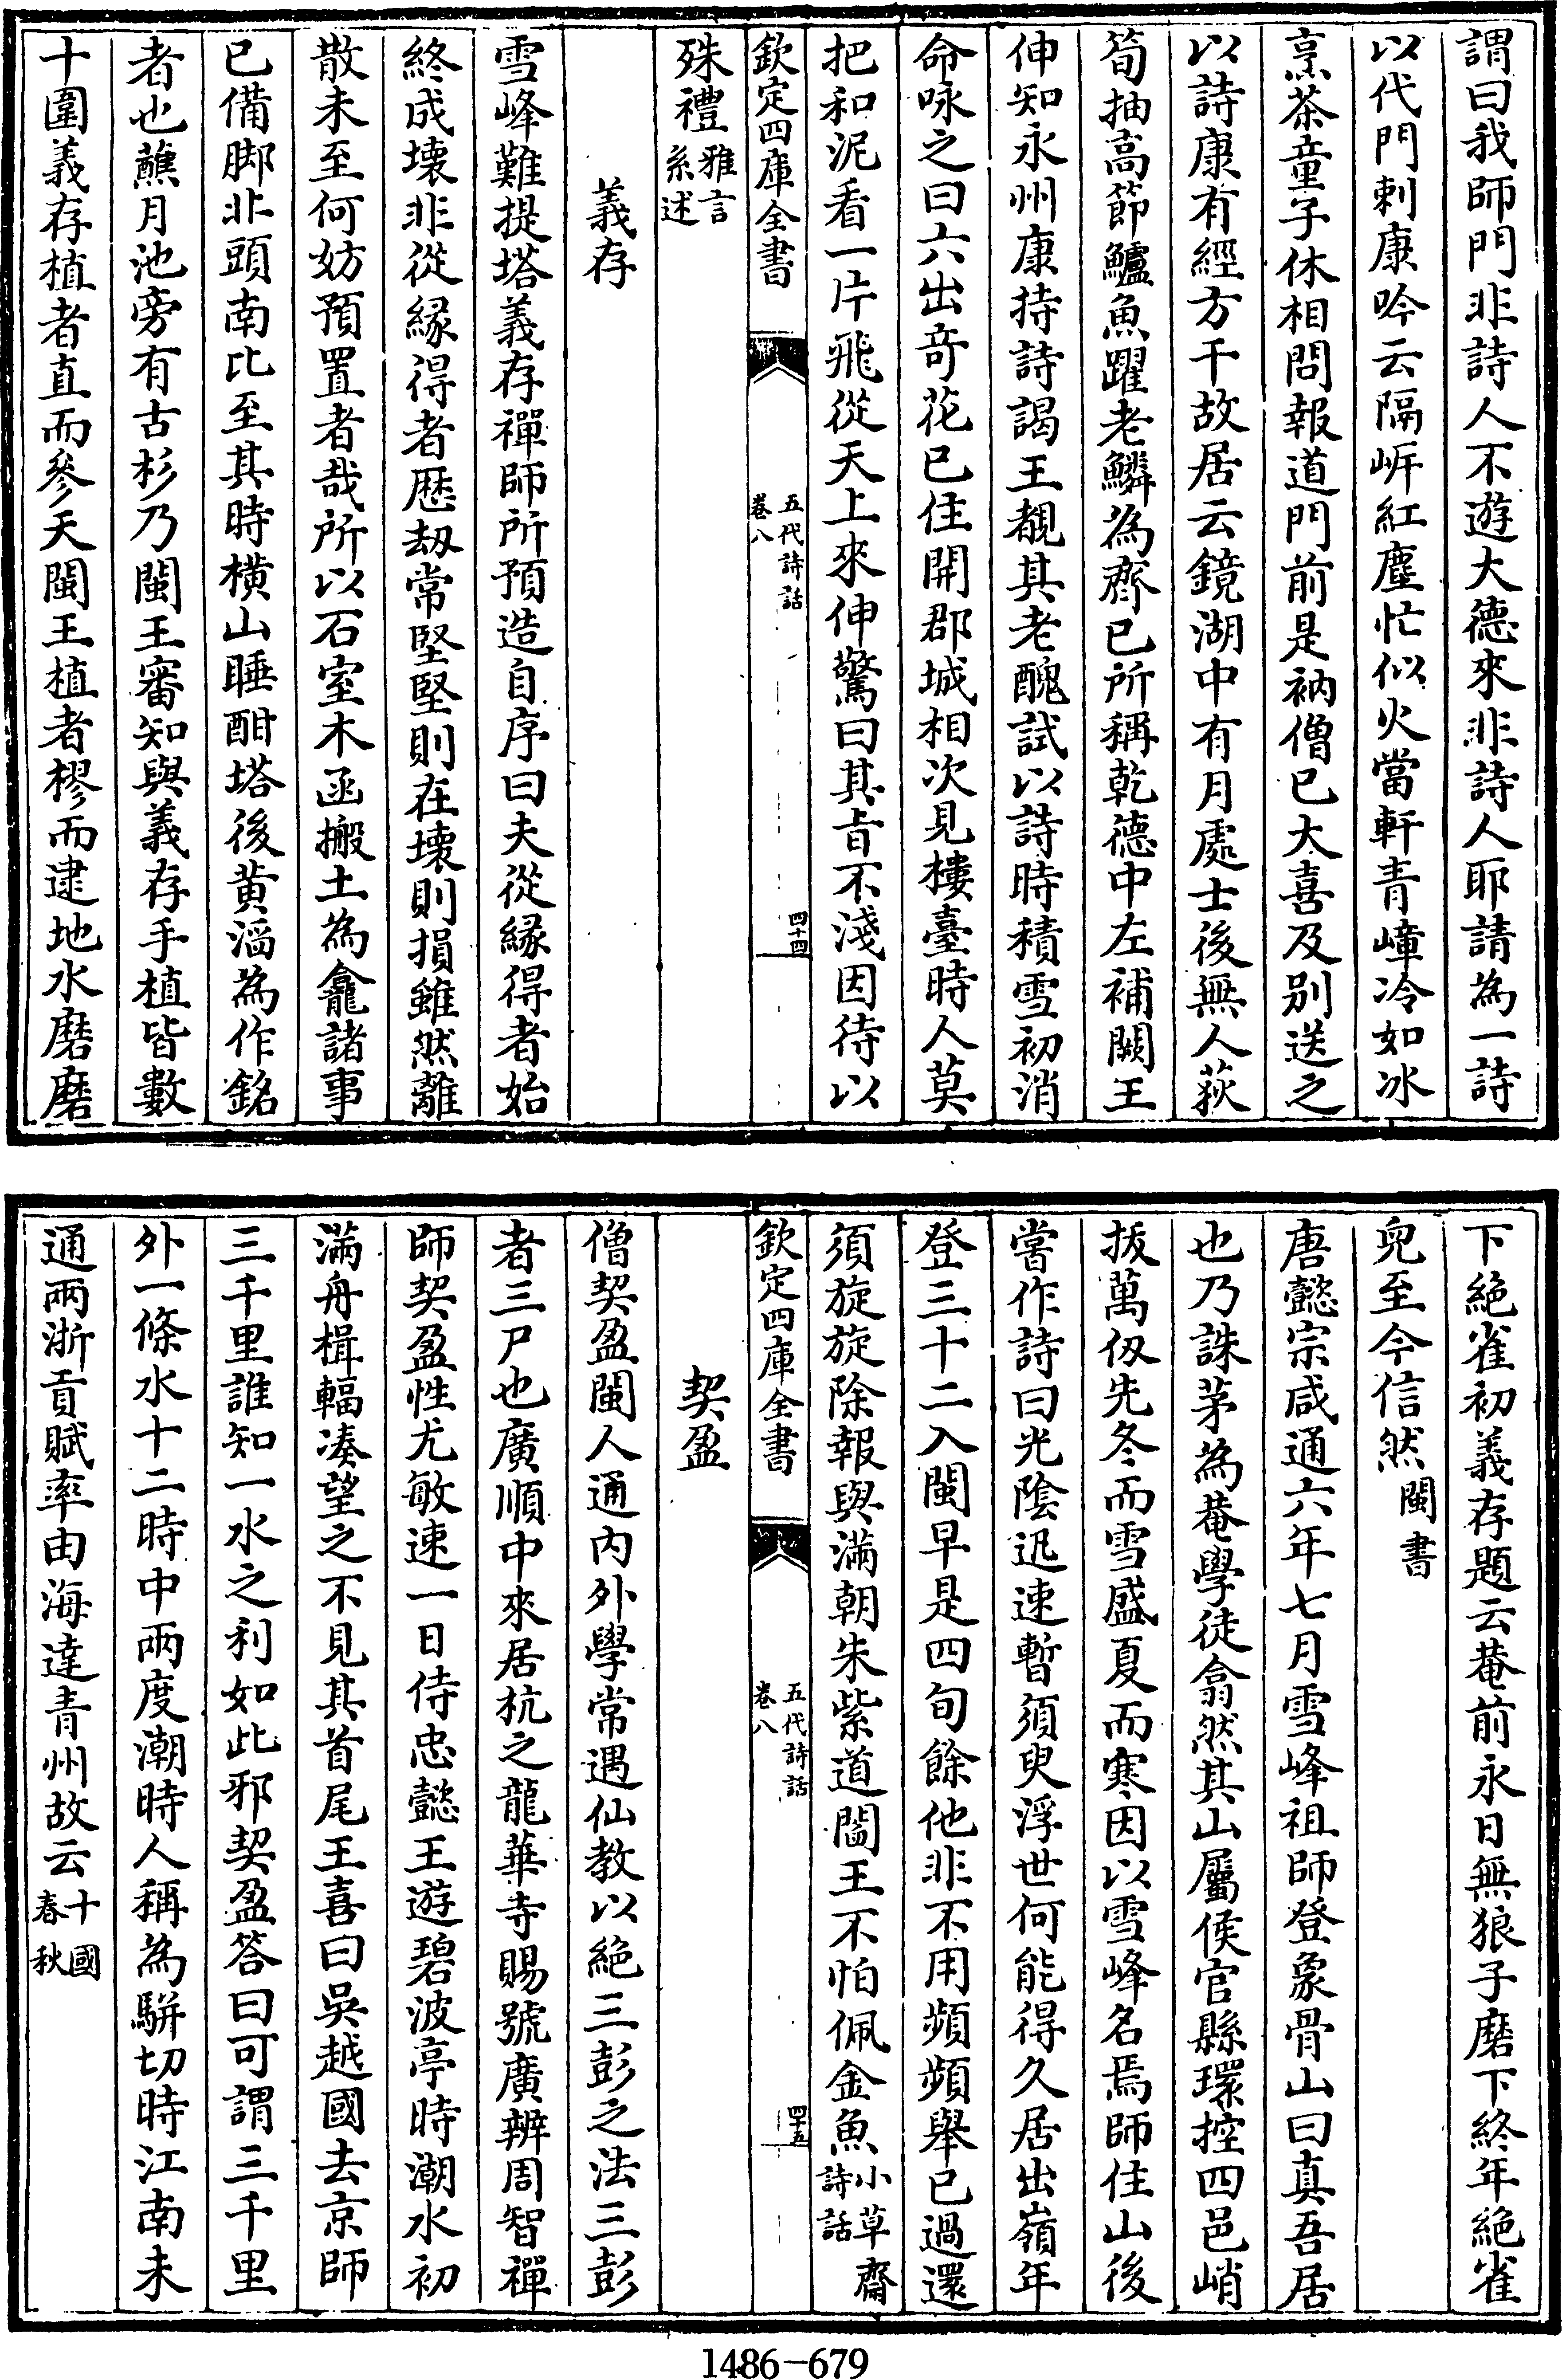 謂曰我師門非詩人不遊大德來非詩人耶請為一詩
以代門刺康吟云隔岍紅塵忙似火當軒青嶂冷如冰
烹茶童子休相問報道門前是衲僧已大喜及别送之
以詩康有經方干故居云鏡湖中有月處士後無人荻
筍抽高節鱸魚躍老鱗為齊已所稱乾德中左補闕王
伸知永州康持詩謁王覩其老醜試以詩時積雪初消
命咏之曰六出奇花已住開郡城相次見樓臺時人莫
把和泥看一片飛從天上來伸驚曰其旨不淺因待以
欽定四庫全書
五代詩話
卷八
四十四
殊禮雅言
系述
義存
雪峰難提塔義存禪師所預造自序曰夫從緣得者始
終成壞非從緣得者歷劫常堅堅則在壞則損雖然離
散未至何妨預置者哉所以石室木函搬土為龕諸事
已備脚非頭南比至其時橫山睡酣塔後黃滔為作銘
者也蘸月池旁有古杉乃閩王審知與義存手植皆數
十圍義存植者直而參天閩王植者樛而逮地水磨磨
下絶雀初義存題云菴前永日無狼子磨下終年絶雀
兒至今信然閩書
唐懿宗咸通六年七月雪峰祖師登象骨山曰真吾居
也乃誅茅為菴學徒翕然其山屬候官縣環控四邑峭
拔萬仭先冬而雪盛夏而寒因以雪峰名焉師住山後
嘗作詩曰光陰迅速暫須臾浮世何能得久居出嶺年
登三十二入閩早是四旬餘他非不用頻頻舉已過還
須旋旋除報與滿朝朱紫道閻王不怕佩金魚小草齋
詩話
欽定四庫全書
五代詩話
卷八
四十五
契盈
僧契盈閩人通内外學常遇仙教以絶三彭之法三彭
者三尸也廣順中來居杭之龍華寺賜號廣辨周智禪
師契盈性尤敏速一日侍忠懿王遊碧波亭時潮水初
滿舟楫輻湊望之不見其首尾王喜曰吳越國去京師
三千里誰知一水之利如此邪契盈答曰可謂三千里
外一條水十二時中兩度潮時人稱為駢切時江南未
通兩浙貢賦率由海達青州故云十國
春秋
1486-679